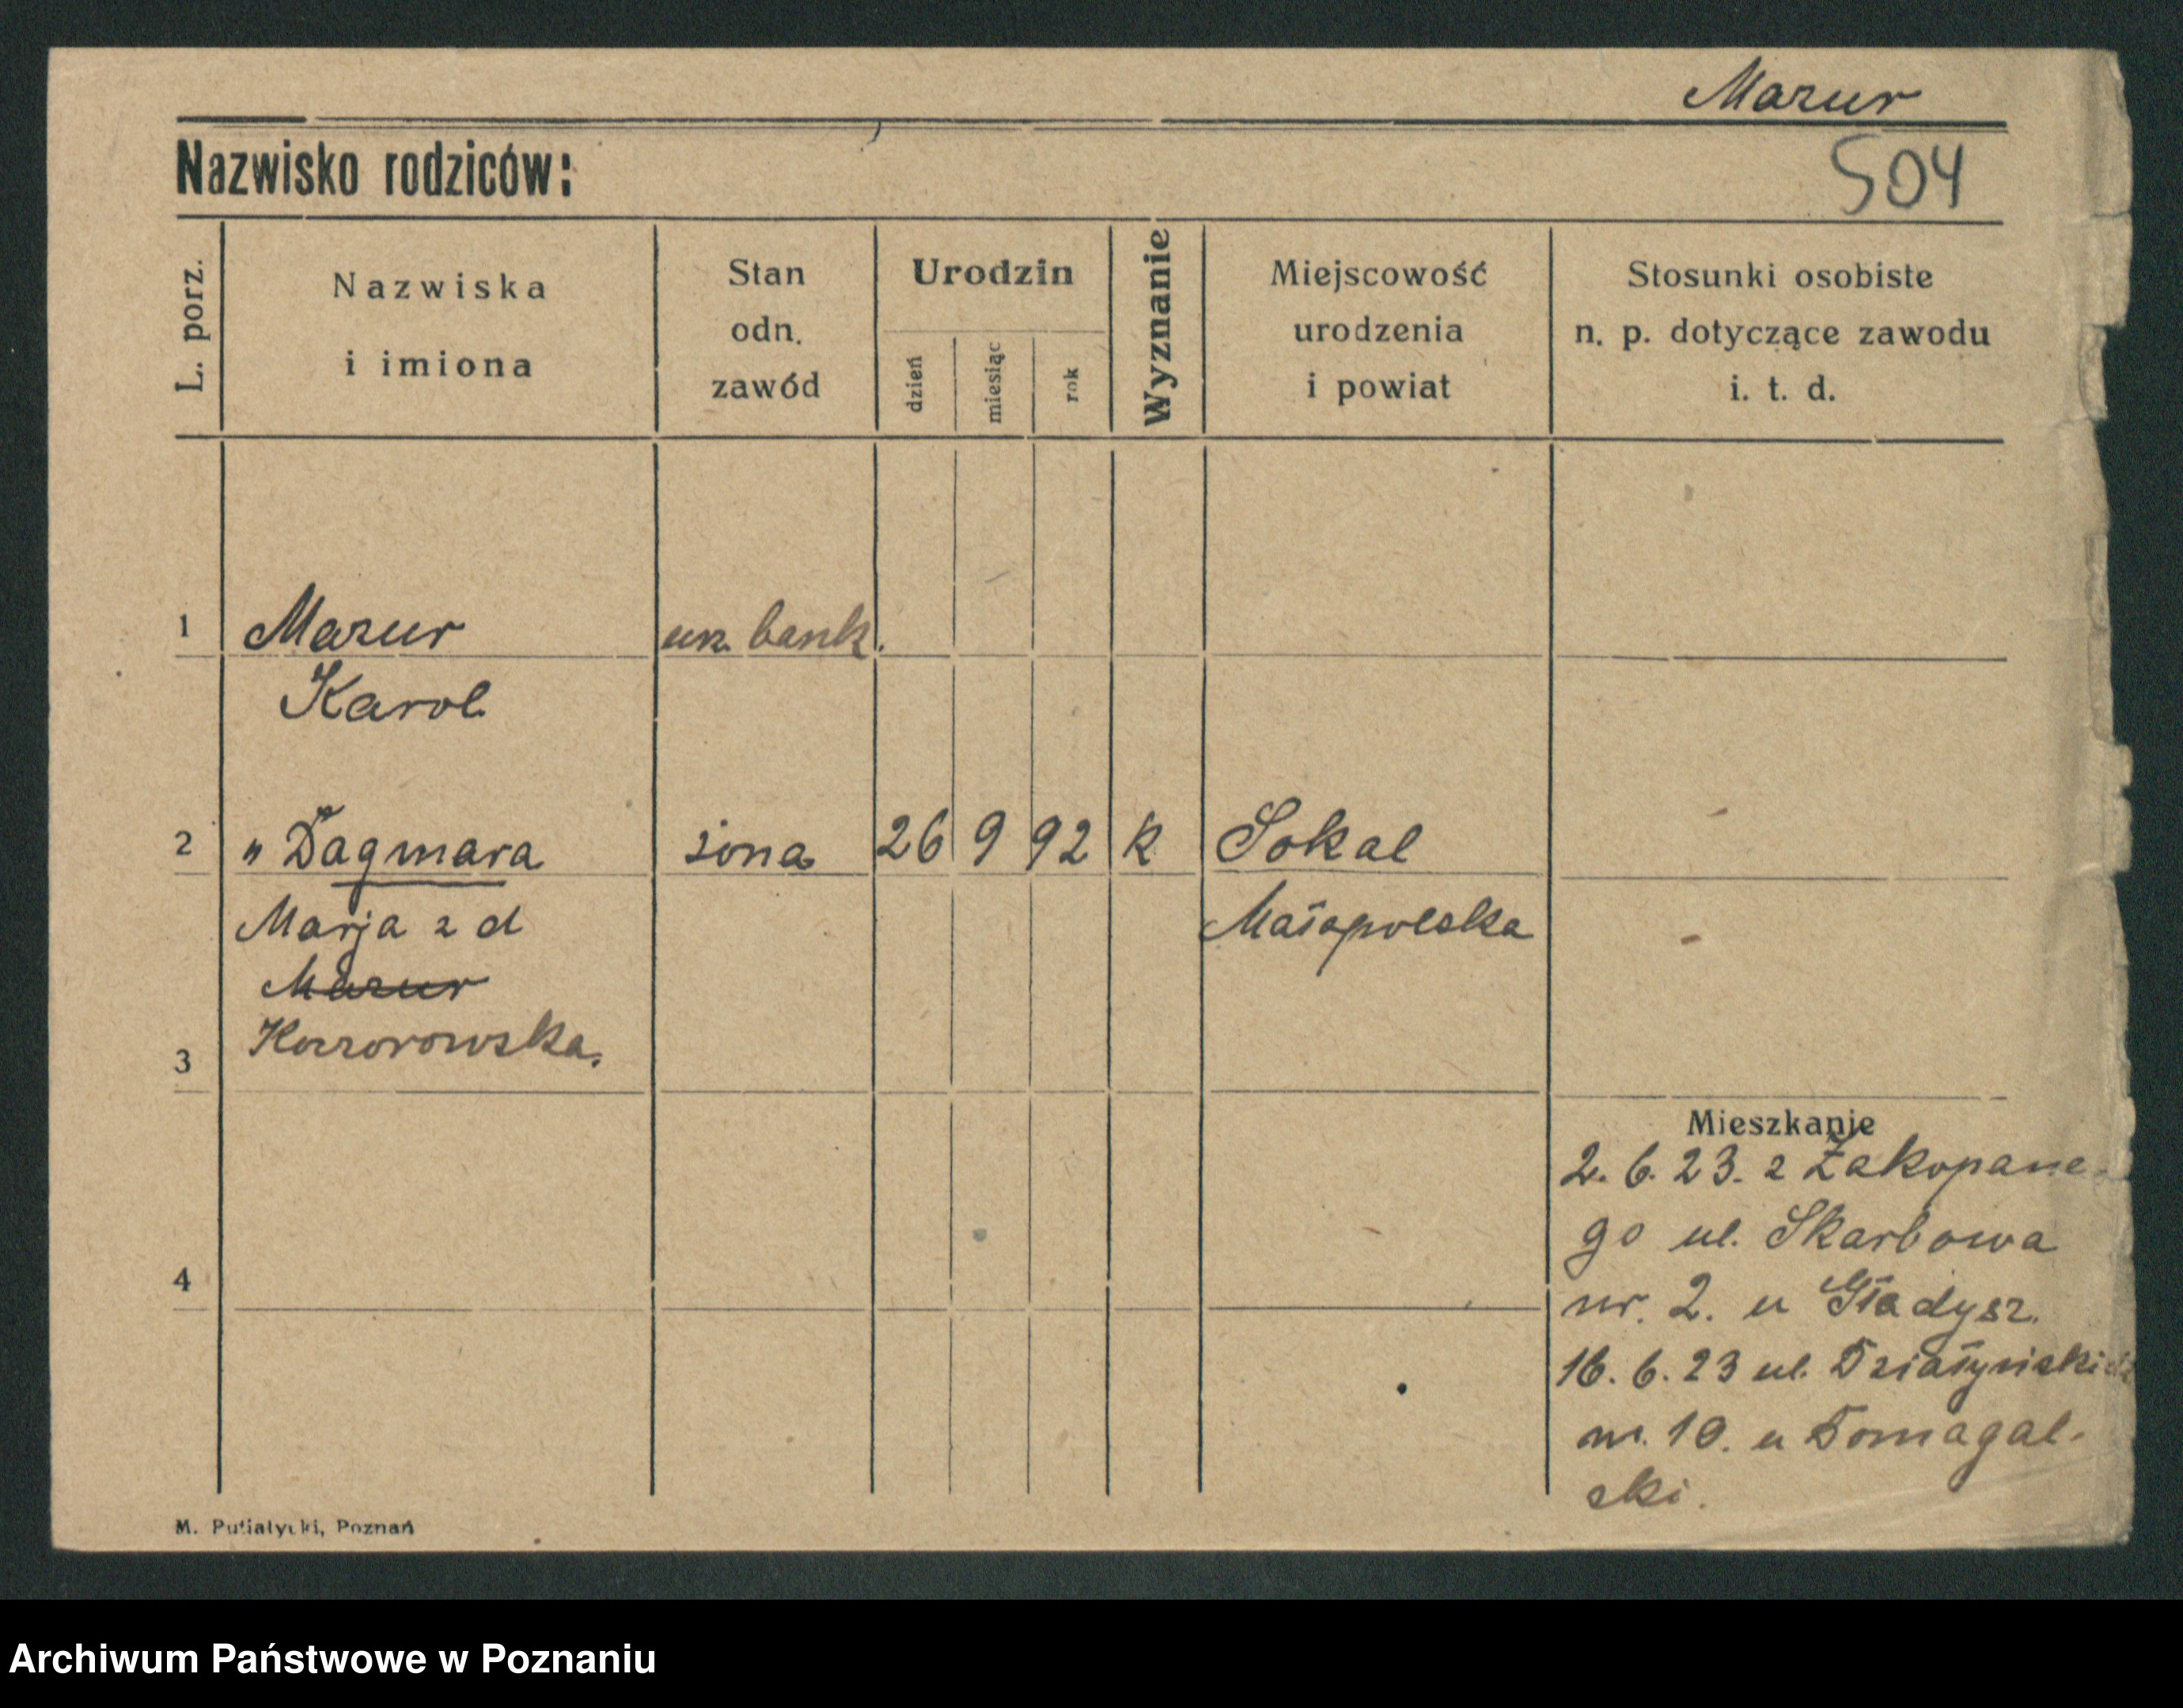 Mazur
Nazwisko rodziców:
504
L. porz.
Nazwiska
i imiona
Stan
odn.
zawód
Urodzin
dzień
miesiąc
rok
Wyznanie
Miejscowość
urodzenia
i powiat
Stosunki osobiste
n. p. dotyczące zawodu
i. t. d.
1 Mazur urz. bank.
Karol
2 " Dagmara żona 26 9 92 k Sokal
Marja z d Małopolska
Mazur
3
Mieszkanie
2. 6. 23. z Zakopane-
go ul. Skarbowa
nr. 2. u Gładysz.
4
16. 6. 23 ul.
nr. 10. u Domagal-
ski.
M. Putiatycki, Poznań
Archiwum Państwowe w Poznaniu